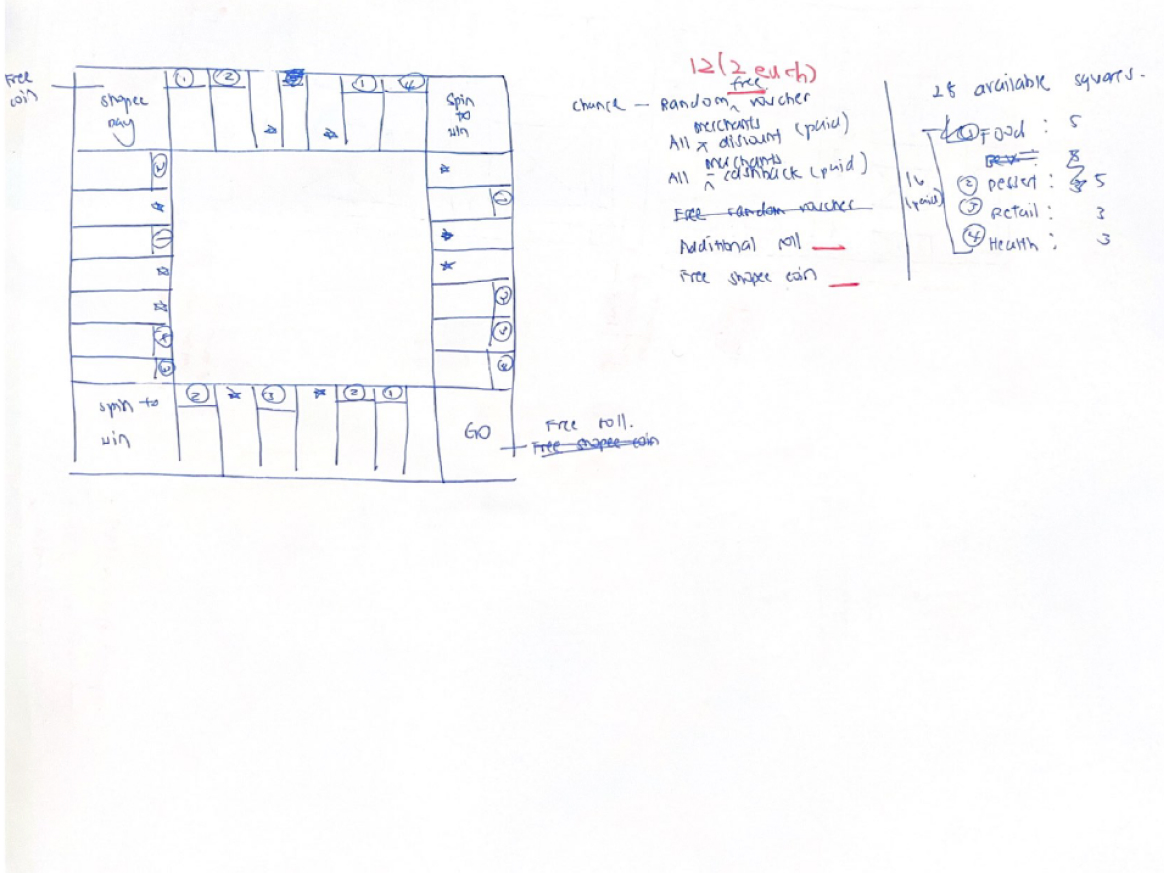 Free
coin
shopee
pay
① ② ① ④
Spin
to
win
spin to
win
② ③ ② ①
GO
Free roll.
Free shopee coin
12 (2 each)
free
chance — Random ^ voucher
merchants
All ^ discount (paid)
merchants
All ^ cashback (paid)
Free random voucher
Additional roll
Free shopee coin
28 available squares.
16
(paid)
① Food : 5
8
② Dessert : 5
③ Retail : 3
④ Health : 3